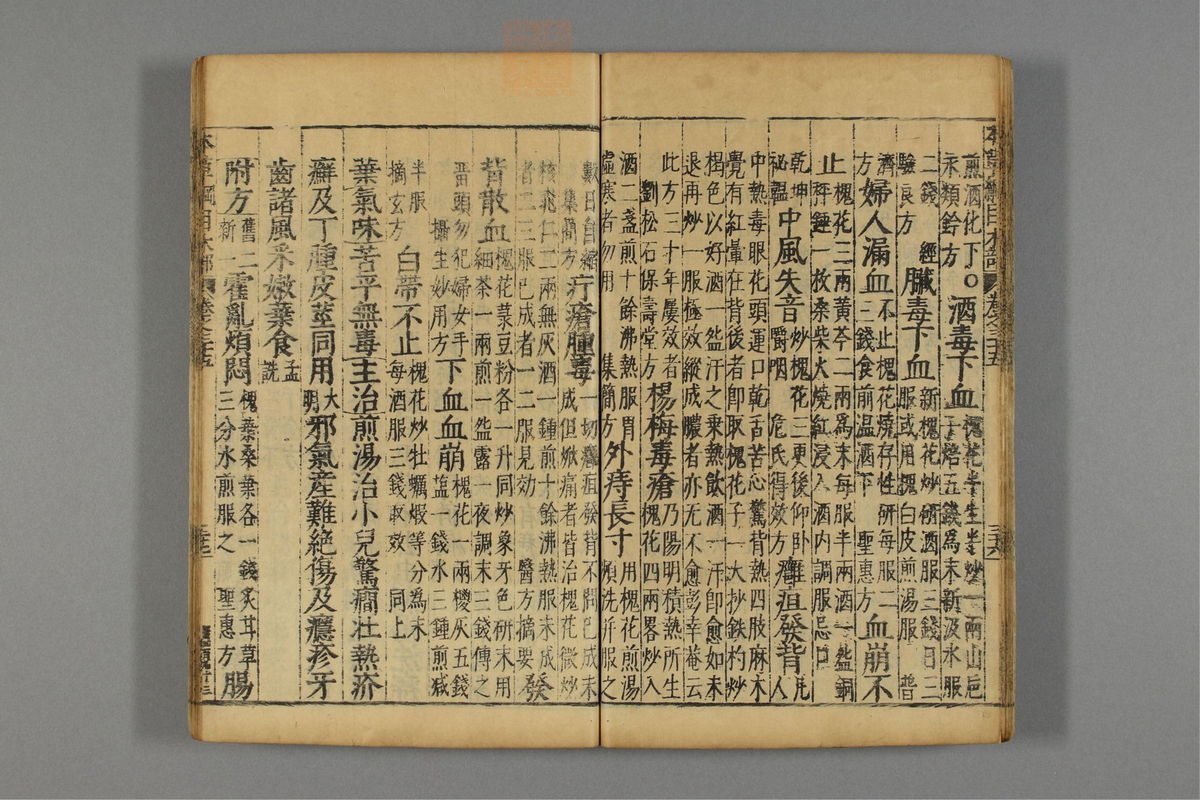 煎酒化下○酒毒下血槐花半生半炒一兩山巵
子焙五錢為末新汲水服
二錢經
驗良方臟毒下血新槐花炒研酒服三錢日三
服或用槐白皮煎湯服普
濟方婦人漏血不止槐花燒存性研每服二
三錢食前温酒下聖惠方血崩不
止槐花三兩黃芩二兩為末每服半兩酒一盌銅
秤錘一枚桑柴火燒紅浸入酒内調服忌口
乾坤
秘韞中風失音炒槐花三更後仰卧
嚼咽危氏得效方癰疽發背凡人
中熱毒眼花頭運口乾舌苦心驚背熱四肢麻木
覺有紅暈在背後者卽取槐花子一大抄鉄杓炒
褐色以好酒一盌汗之乘熱飲酒一汗卽愈如未
退再炒一服極效縱成膿者亦无不愈彭幸菴云
此方三十年屢效者
劉松石保壽堂方楊梅毒瘡乃陽明積熱所生
槐花四兩畧炒入
酒二盞煎十餘沸熱服胃
虛寒者勿用集簡方外痔長寸用槐花煎湯
頻洗并服之
數日自縮
集簡方疔瘡腫毒一切癰疽發背不問已成未
成但焮痛者皆治槐花微炒
核桃仁二兩無灰酒一鍾煎十餘沸熱服未成
者二三服已成者一二服見効醫方摘要發
背散血槐花菉豆粉各一升同炒象牙色研末用
細茶一兩煎一盌露一夜調末三錢傅之
畱頭勿犯婦女手
攝生妙用方下血血崩槐花一兩椶灰五錢
鹽一錢水三鍾煎減
半服
摘玄方白帶不止槐花炒牡蠣煅等分為末
每酒服三錢取效同上
葉氣味苦平無毒主治煎湯治小兒驚癇壯熱疥
癬及丁腫皮莖同用大明邪氣産難絶傷及癮疹牙
齒諸風采嫩葉食孟詵
附方舊二
新一霍亂煩悶槐葉桑葉各一錢炙甘草
三分水煎服之聖惠方腸